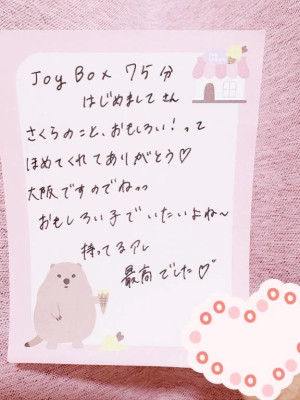 Joy Box 75分
はじめまして さん
さくらのこと、おもしろい!って
ほめてくれてありがとう♡
大阪ですのでねっっ
おもしろい子でいたいよね〜
持ってるアレ
最高でした♡